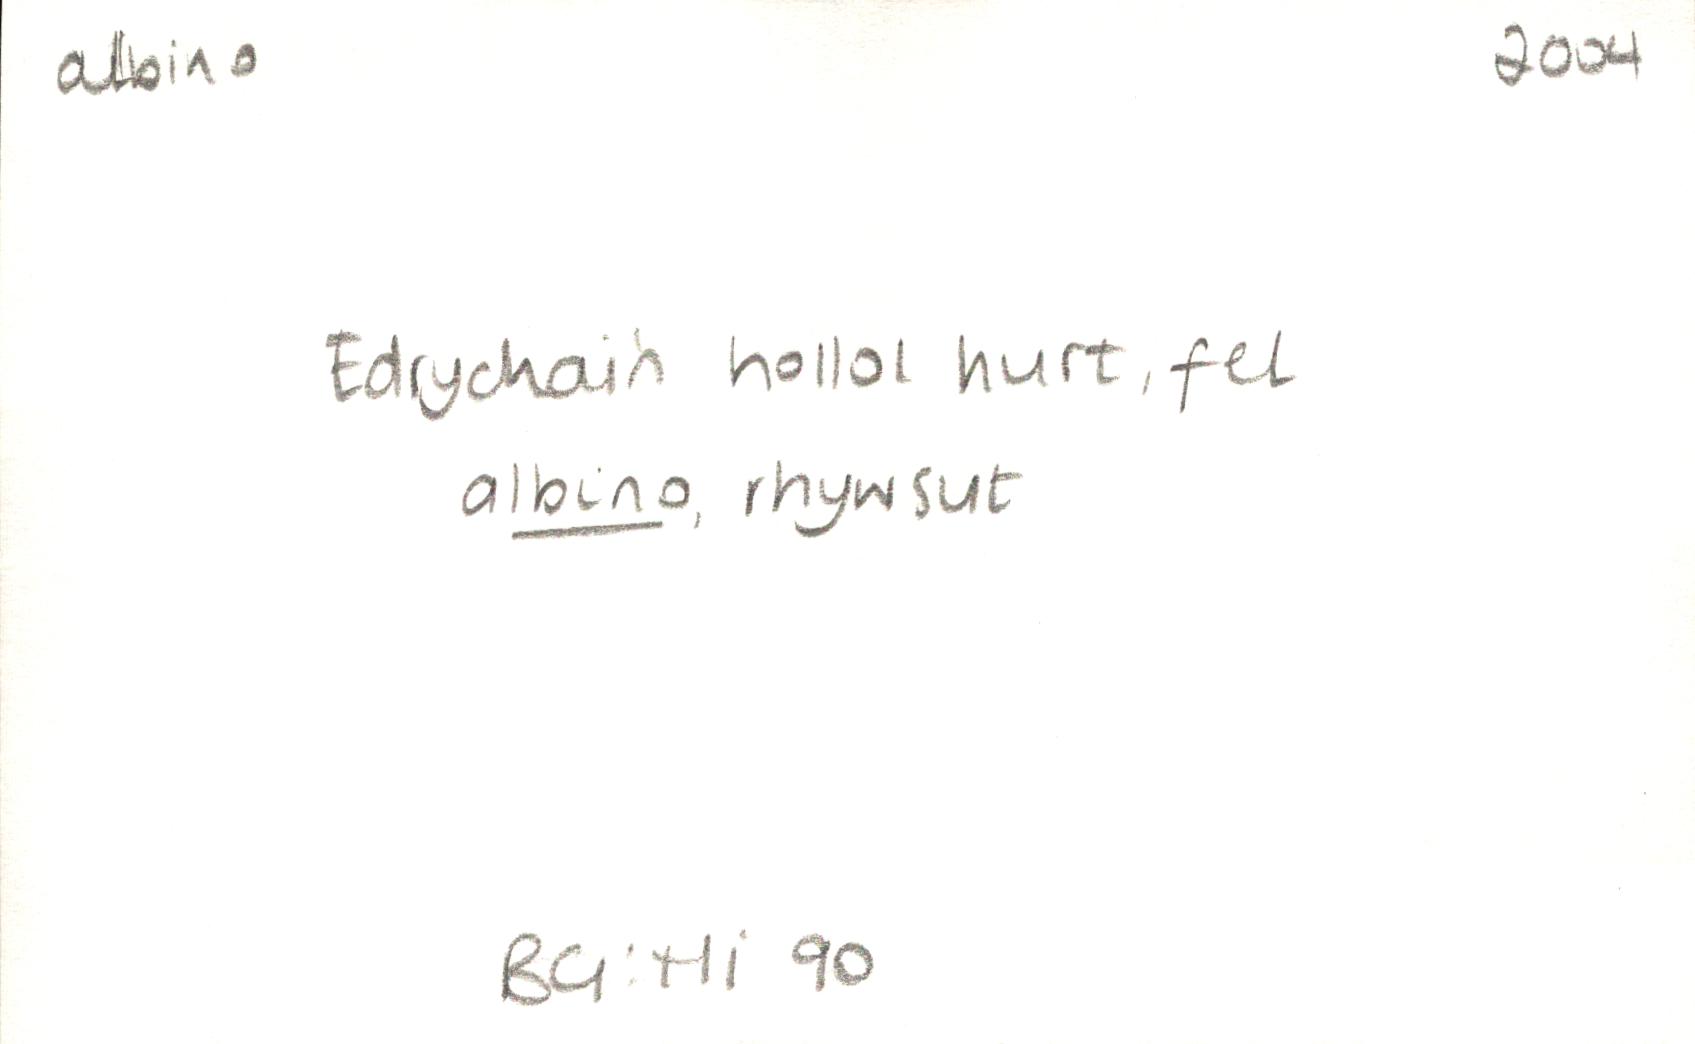 albino 2004
Edrychain hollol hurt, fel
albino, rhywsut
BG: Hi 90